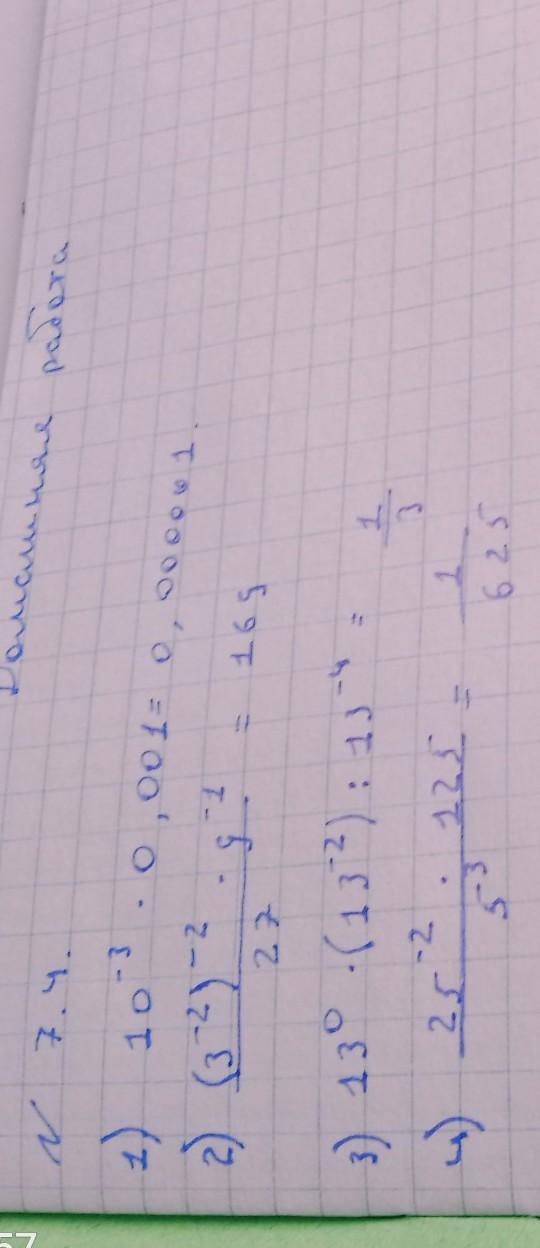 Домашняя работа
N 7.4.
1) 10⁻³ · 0,001 = 0,000001.
2) (3⁻²)⁻² · 9⁻¹ / 27 = 169
3) 13⁰ · (13⁻²) : 13⁻⁴ = 1/3
4) 25⁻² · 125 / 5⁻³ = 1/625
57